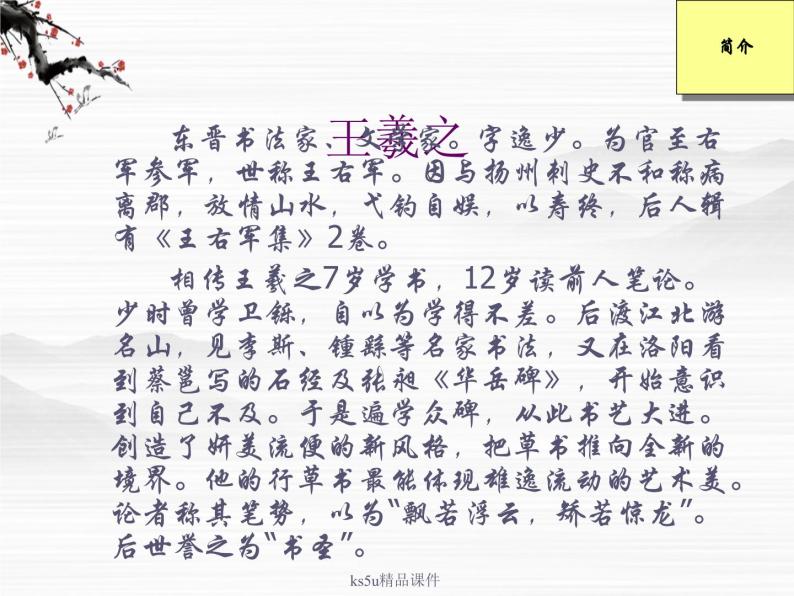 简介
王羲之
东晋书法家、文学家。字逸少。为官至右
军参军，世称王右军。因与扬州刺史不和称病
离郡，放情山水，弋钓自娱，以寿终，后人辑
有《王右军集》2卷。
相传王羲之7岁学书，12岁读前人笔论。
少时曾学卫铄，自以为学得不差。后渡江北游
名山，见李斯、锺繇等名家书法，又在洛阳看
到蔡邕写的石经及张昶《华岳碑》，开始意识
到自己不及。于是遍学众碑，从此书艺大进。
创造了妍美流便的新风格，把草书推向全新的
境界。他的行草书最能体现雄逸流动的艺术美。
论者称其笔势，以为“飘若浮云，矫若惊龙”。
后世誉之为“书圣”。
ks5u精品课件